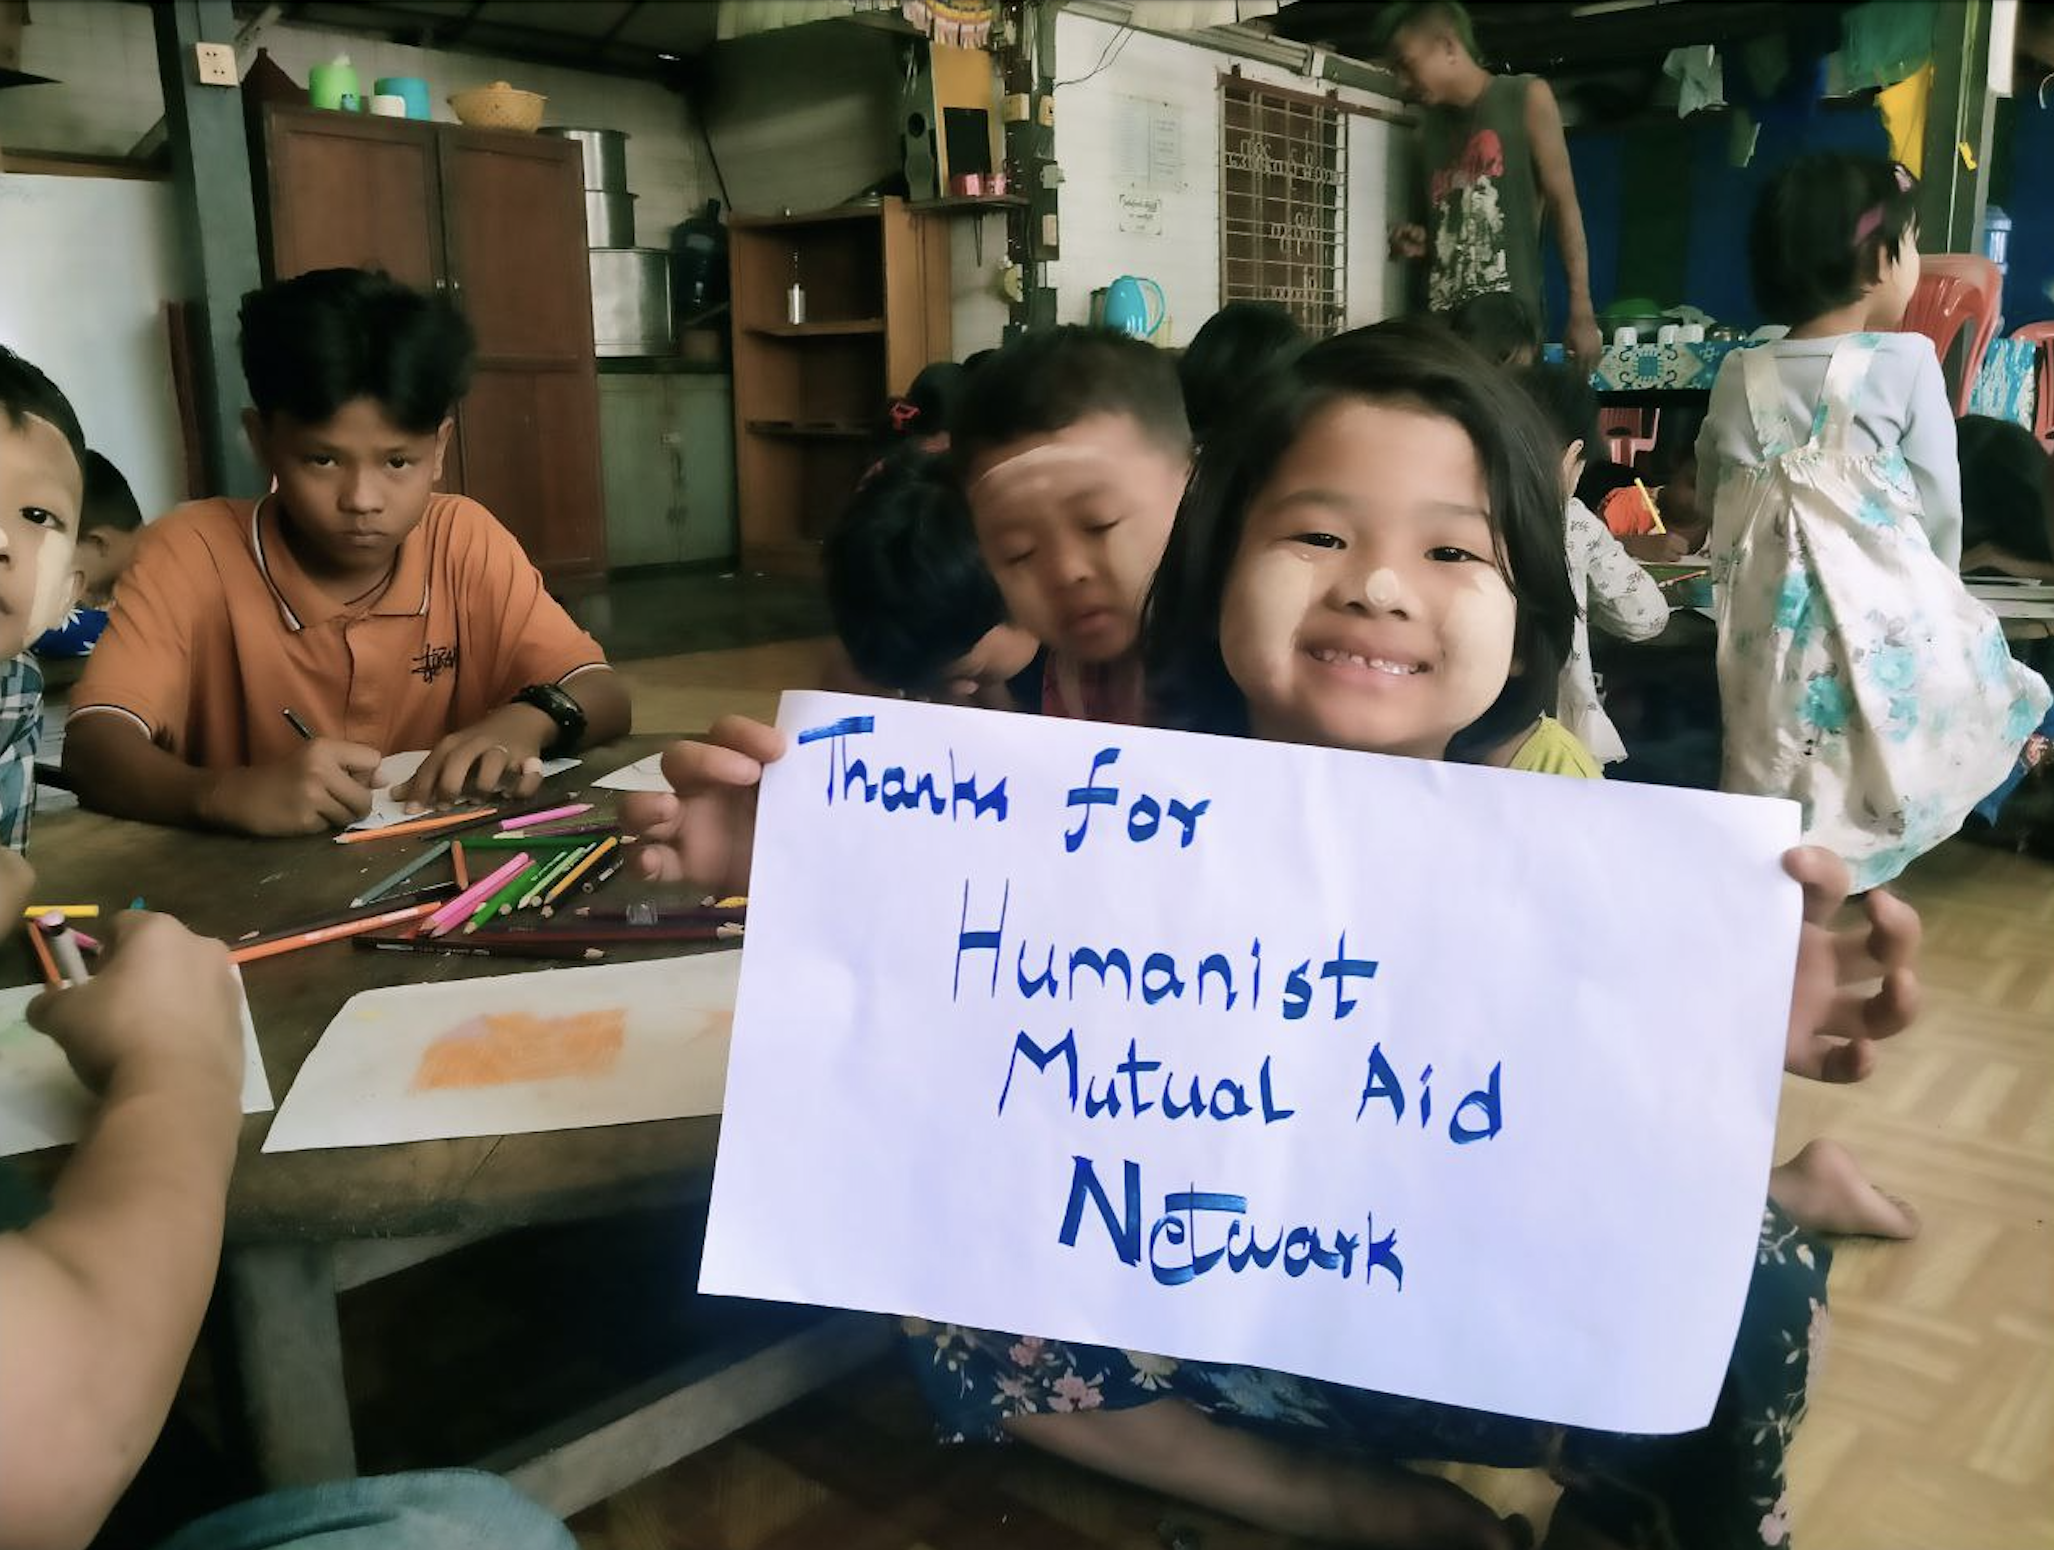 Thanks for
Humanist
Mutual Aid
Netwark